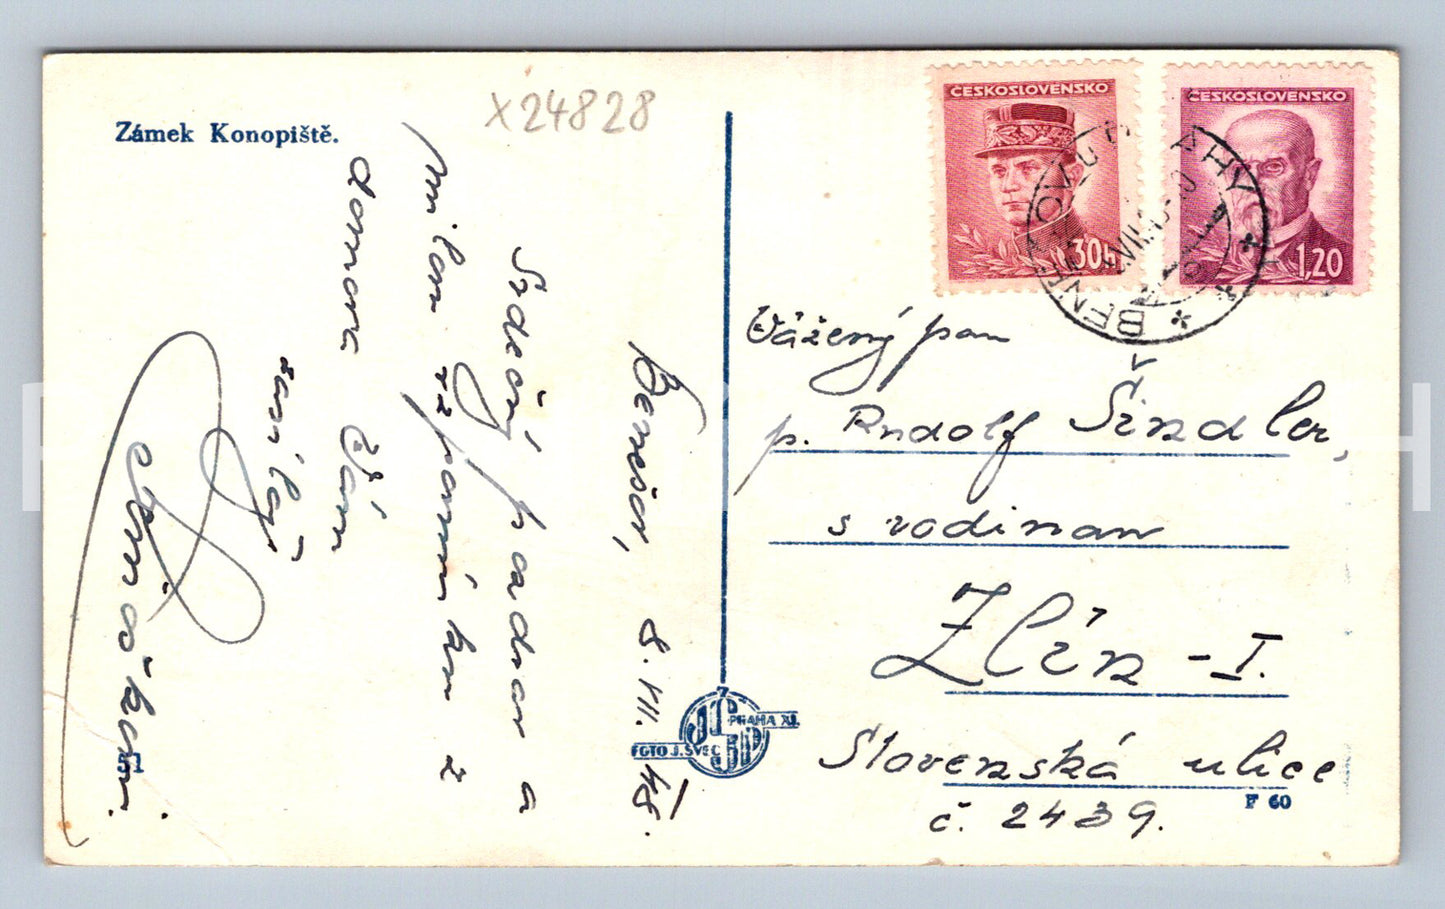 Zámek Konopiště.
X24828
Benešov, 8.VII.48.
Srdečný pozdrav a
milou vzpomínku z
domova Vám
zasílají
51
ČESKOSLOVENSKO
30h
ČESKOSLOVENSKO
1,20
Vážený pan
p. Rudolf Šindler,
s rodinou
Zlín - I.
Slovenská ulice
č. 2439.
FOTO J.ŠVEC
PRAHA XI.
F 60